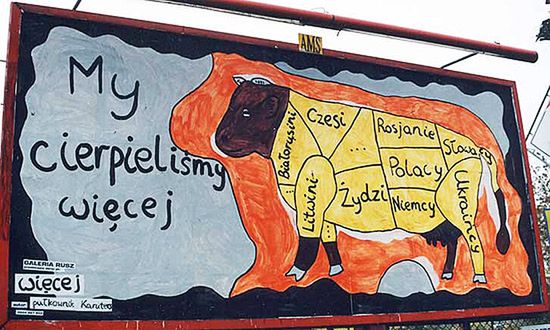 AMS
My
cierpieliśmy
więcej
Białorusini
Czesi
Rosjanie
Słowacy
Litwini
Żydzi
Polacy
Niemcy
Ukraińcy
GALERIA RUSZ
więcej
autor: pułkownik